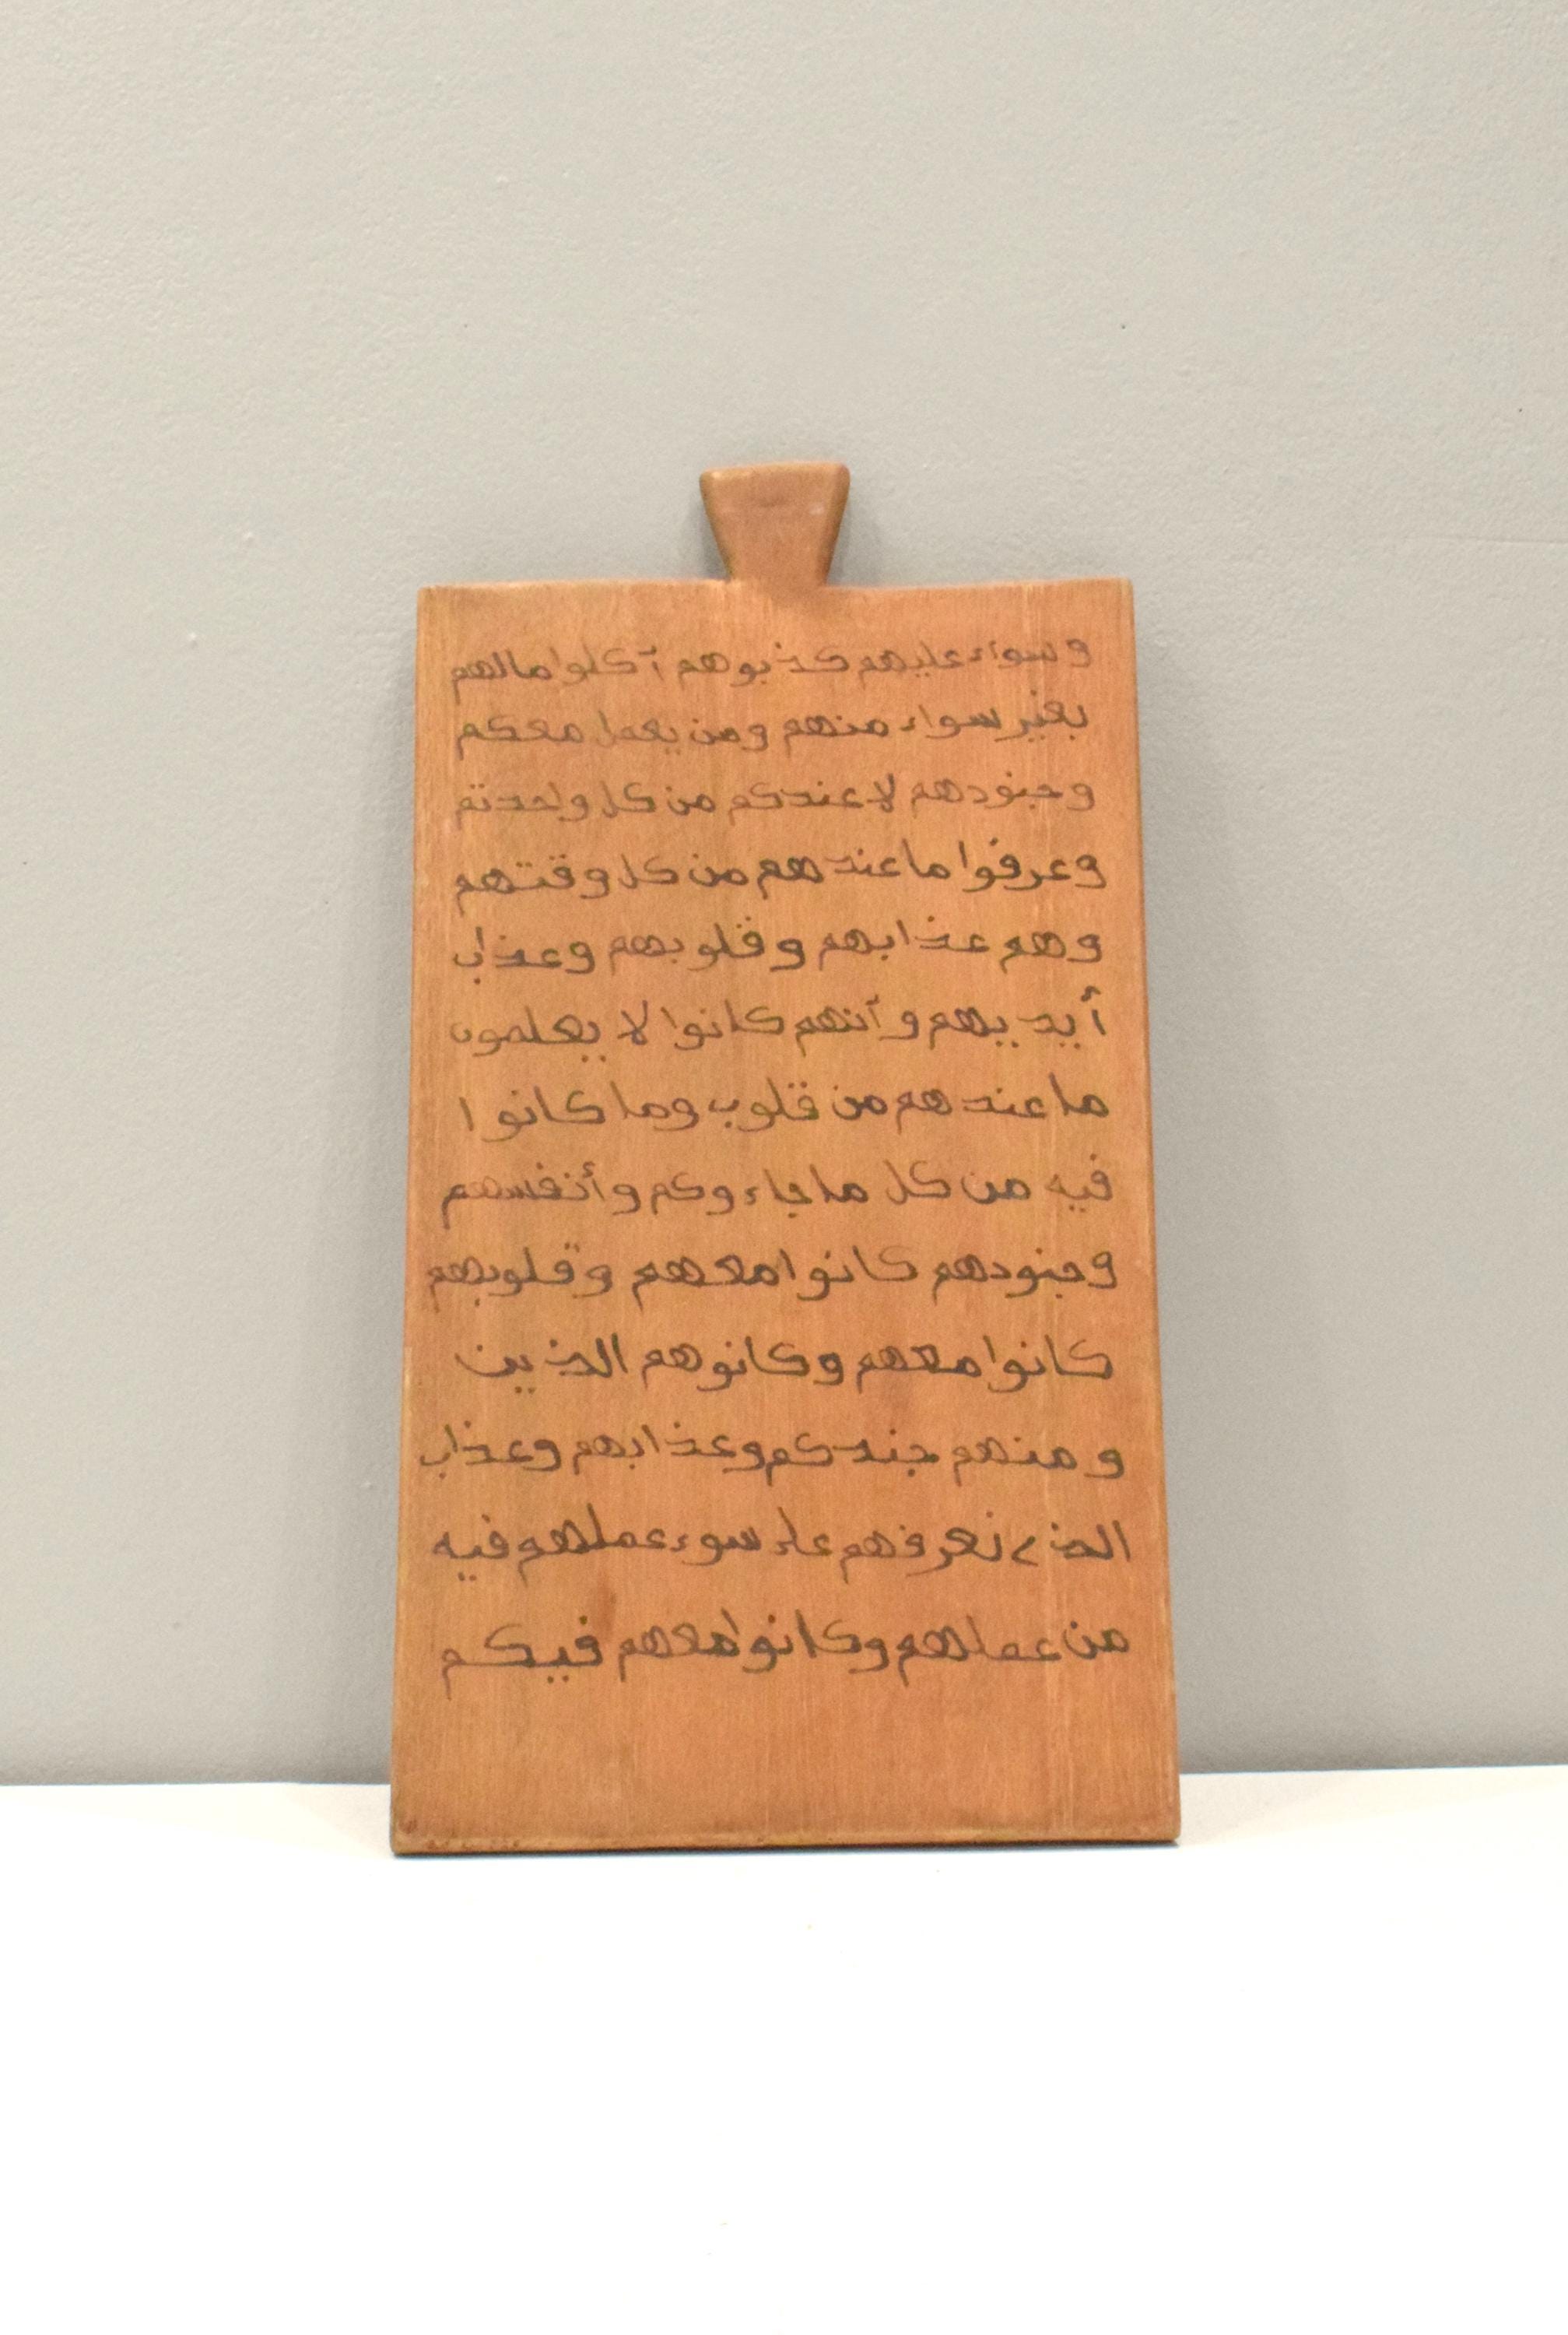 وسواء عليهم كذبوهم آكلوا مالهم
بغير سواء منهم ومن يعمل معكم
وجنودهم لا عندكم من كل واحدتم
وعرفوا ما عندهم من كل وقتهم
وهم عذابهم وقلوبهم وعذاب
أيديهم وآنهم كانوا لا يعلمون
ما عندهم من قلوب وما كانوا
فيه من كل ما جاءوكم وأنفسهم
وجنودهم كانوا معهم وقلوبهم
كانوا معهم وكانوهم الذين
ومنهم جندكم وعذابهم وعذاب
الذي نعرفهم سوء عملهم فيه
من عملهم وكانوا معهم فيكم